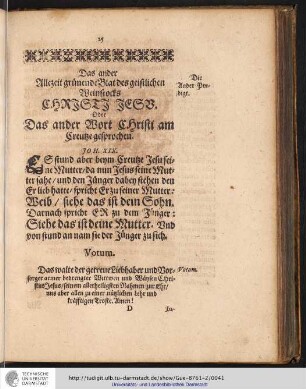 25
Das ander
Allezeit grünende Blat des geistlichen
Weinstocks
CHRISTI JESV.
Oder
Das ander Wort CHristi am
Creutze gesprochen.
Die
Ander Pre-
digt.
JOH. XIX.
ES stund aber beym Creutze Jesu sei-
ne Mutter/da nun Jesus seine Mut-
ter sahe/und den Jünger dabey stehen den
Er lieb hatte/spricht Er zu seiner Mutter:
Weib/siehe das ist dein Sohn.
Darnach spricht ER zu dem Jünger:
Siehe das ist deine Mutter. Und
von stund an nam sie der Jünger zu sich.
Votum.
Das walte der getreue Liebhaber und Vor-
sorger armer bedrengter Wittwen und Wäysen CHri-
stus Jesus/seinem allerheiligsten Nahmen zur Ehr/
uns aber allen zu einer nützlichen Lehr und
kräfftigen Troste. Amen!
Votum.
D
http://tudigit.ulb.tu-darmstadt.de/show/Gue-8761-2/0041
Universitäts- und Landesbibliothek Darmstadt